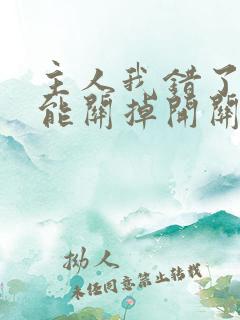 主人我错了
能關掉開關
拗人
未经同意禁止转载